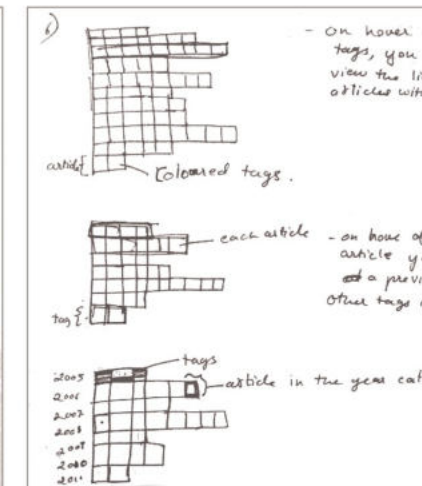 6)
- on hover
tags, you
view the li
articles with
article{
Coloured tags.
each article
- on hove of
article y
a previ
other tags
tag {
tags
article in the year cat
2005
2006
2007
2008
2009
2010
2011